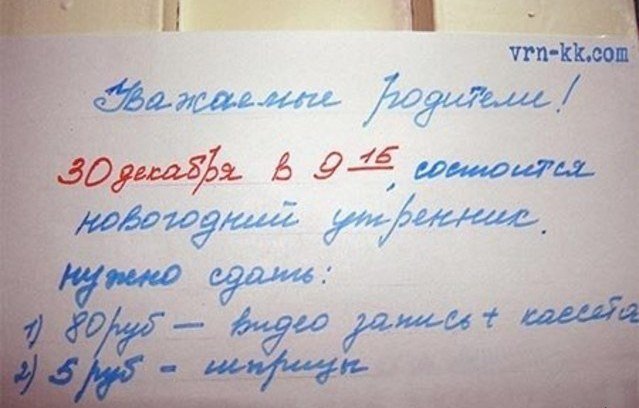 vrn-kk.com
Уважаемые родители!
30 декабря в 9 15, состоится
новогодний утренник.
нужно сдать:
1) 80 руб — видео запись + кассета
2) 5 руб - шприцы